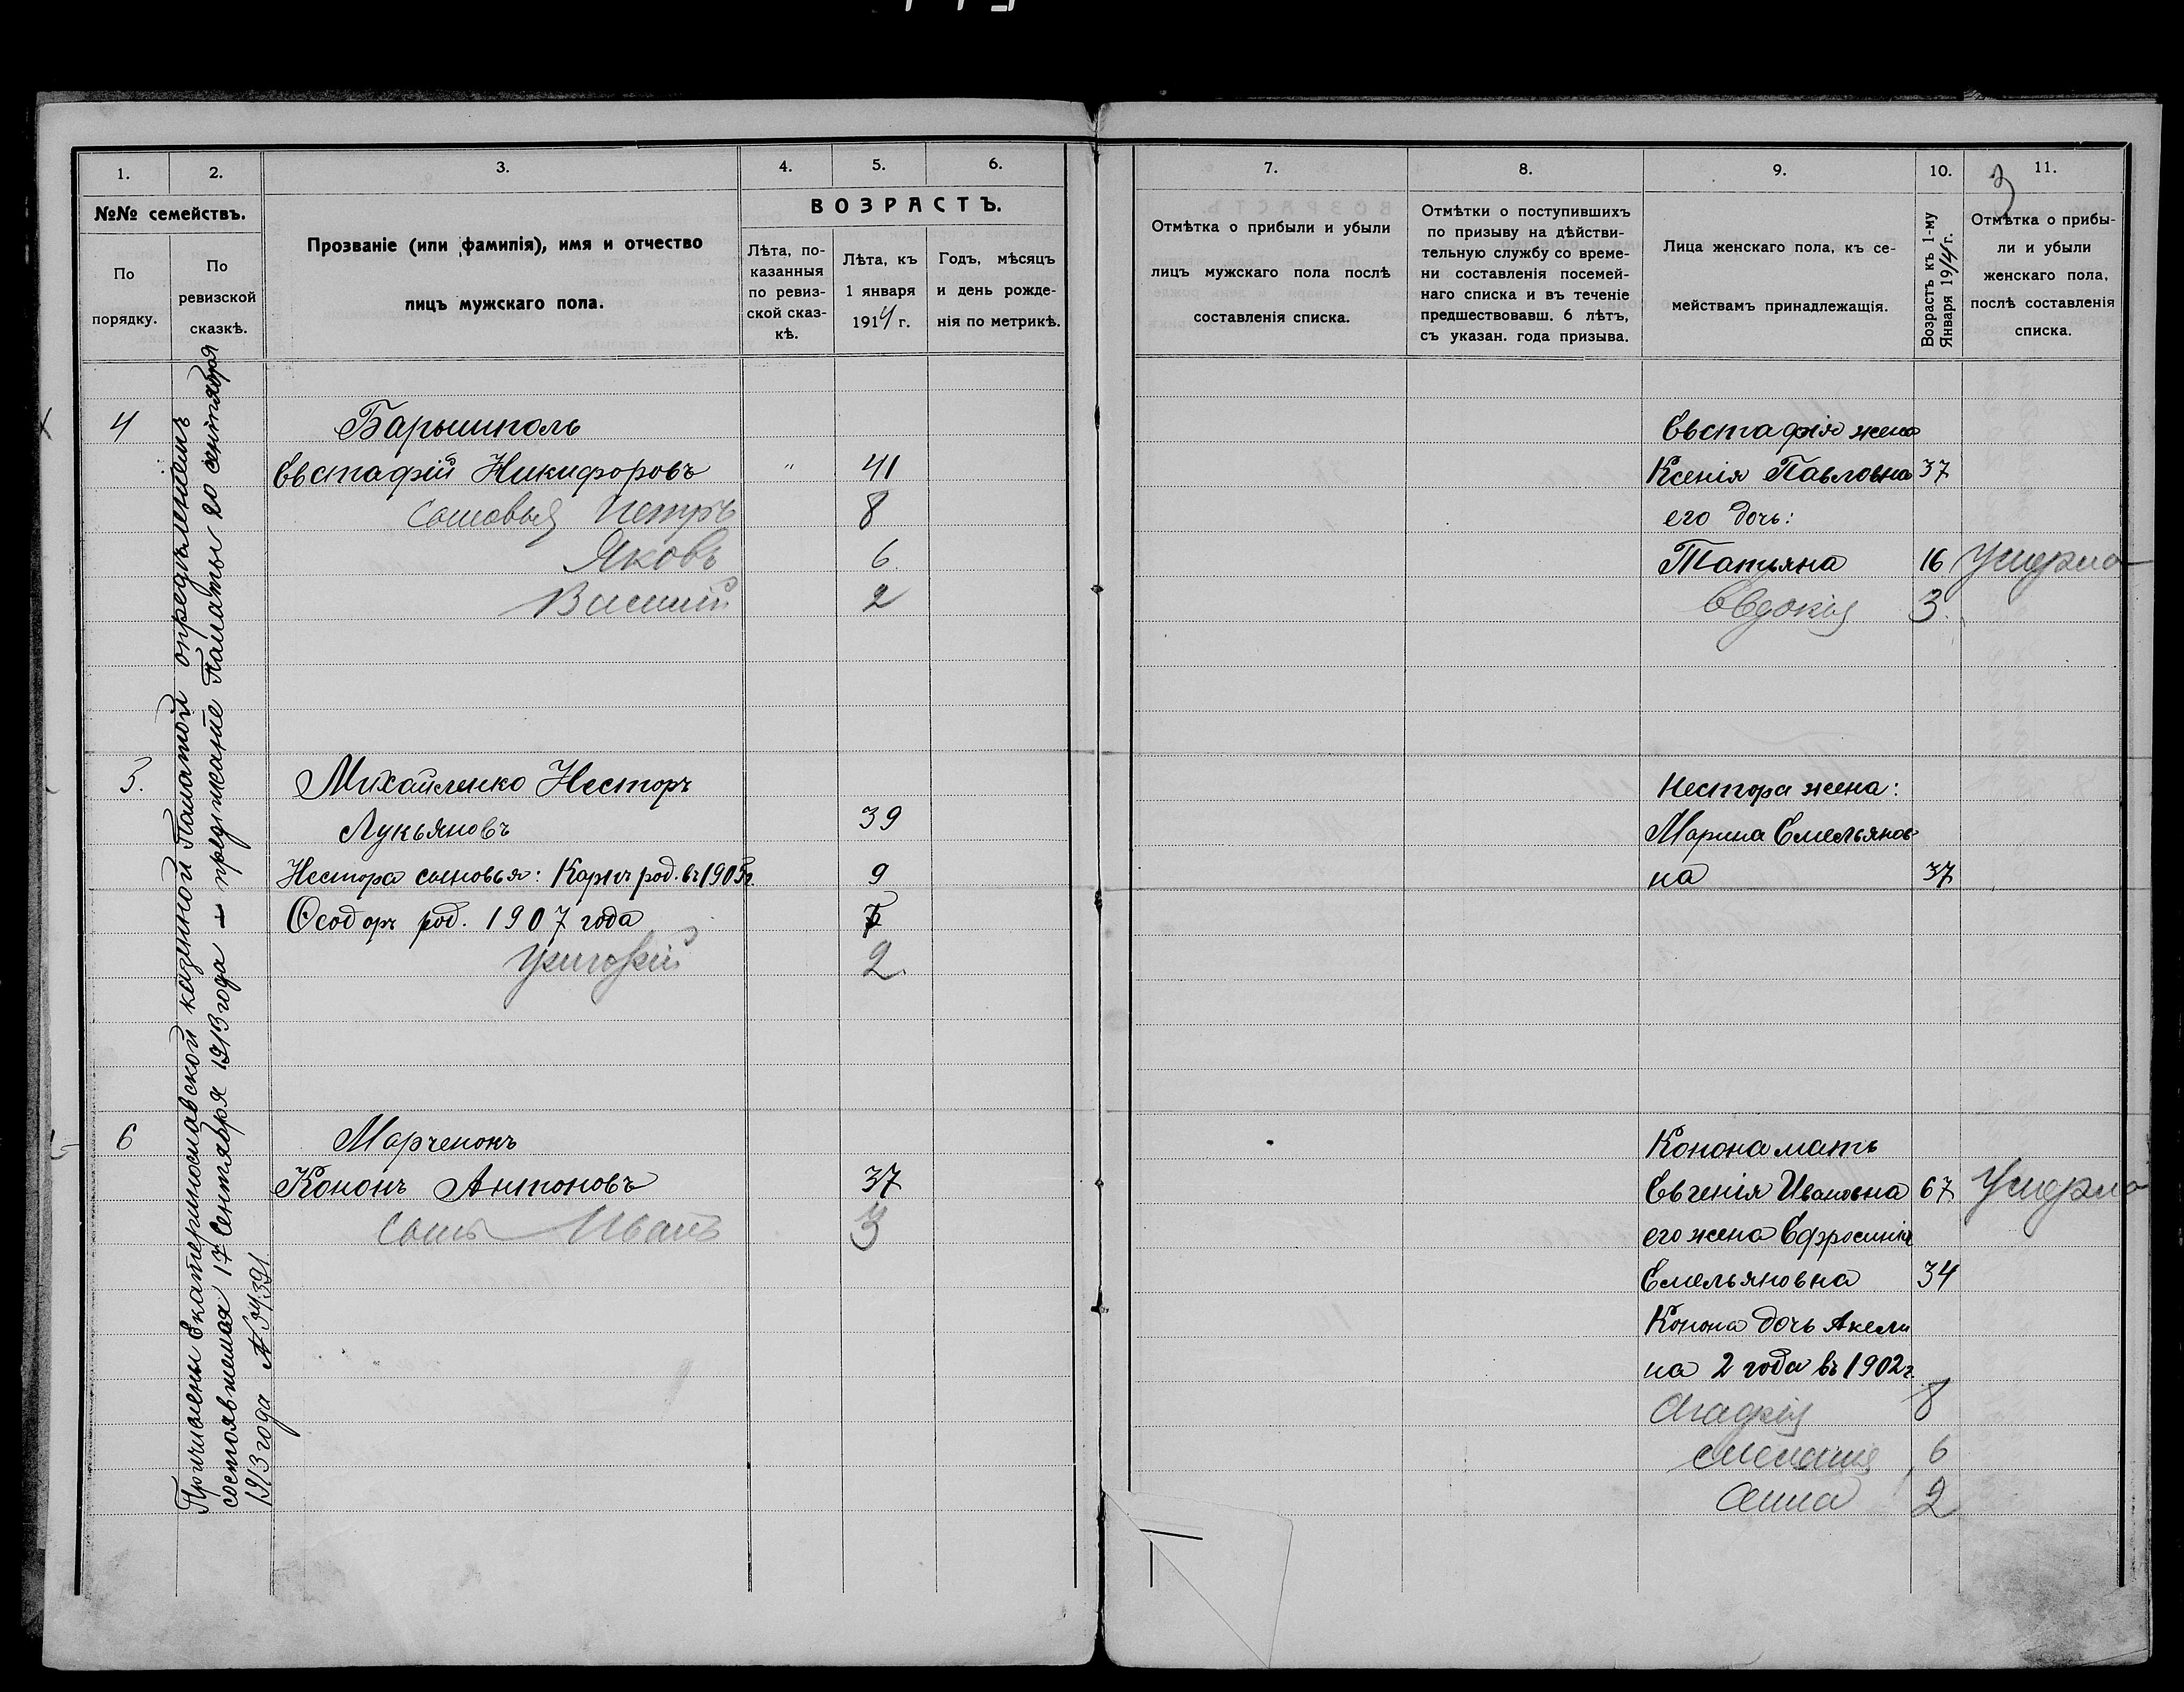 1.
2.
3.
4.
5.
6.
№№ семействъ.
По порядку.
По ревизской сказкѣ.
Прозваніе (или фамилія), имя и отчество
лицъ мужскаго пола.
ВОЗРАСТЪ.
Лѣта, по-
казанныя
по ревиз-
ской сказ-
кѣ.
Лѣта, къ
1 января
1914 г.
Годъ, мѣсяцъ
и день рожде-
нія по метрикѣ.
Причислены Екатеринославской казенной Палатой опредѣленіемъ
состоявшемся 17 Сентября 1913 года — предписаніе Палаты 20 сентября
1913 года № 34391
4
Барышполь
Евстафій Никифоровъ " 41
сыновья Петръ 8
Яковъ 6
Василій 2
5.
Михайленко Несторъ
Лукьяновъ 39
Нестора сыновья: Карпъ род. въ 1905 г. 9
Ѳеодоръ род. 1907 года 7
Григорій 2
6
Марченокъ
Кононъ Антоновъ 37
сынъ Иванъ 3
7.
8.
9.
10.
11.
3
Отмѣтка о прибыли и убыли
лицъ мужскаго пола послѣ
составленія списка.
Отмѣтки о поступившихъ
по призыву на дѣйстви-
тельную службу со време-
ни составленія посемей-
наго списка и въ теченіе
предшествовавш. 6 лѣтъ,
съ указан. года призыва.
Лица женскаго пола, къ се-
мействамъ принадлежащія.
Возрастъ къ 1-му
Января 1914 г.
Отмѣтка о прибы-
ли и убыли
женскаго пола,
послѣ составленія
списка.
Евстафія жена
Ксенія Павловна 37
его дочь:
Татьяна 16 Умерла
Евдокія 3
Нестора жена:
Марина Емельянов-
на 37
Конона мать
Евгенія Ивановна 67 Умерла
его жена Ефросинія
Емельяновна 34
Конона дочь Акели
на 2 года въ 1902 г.
Агафія 8
Меланія 6
Анна 2